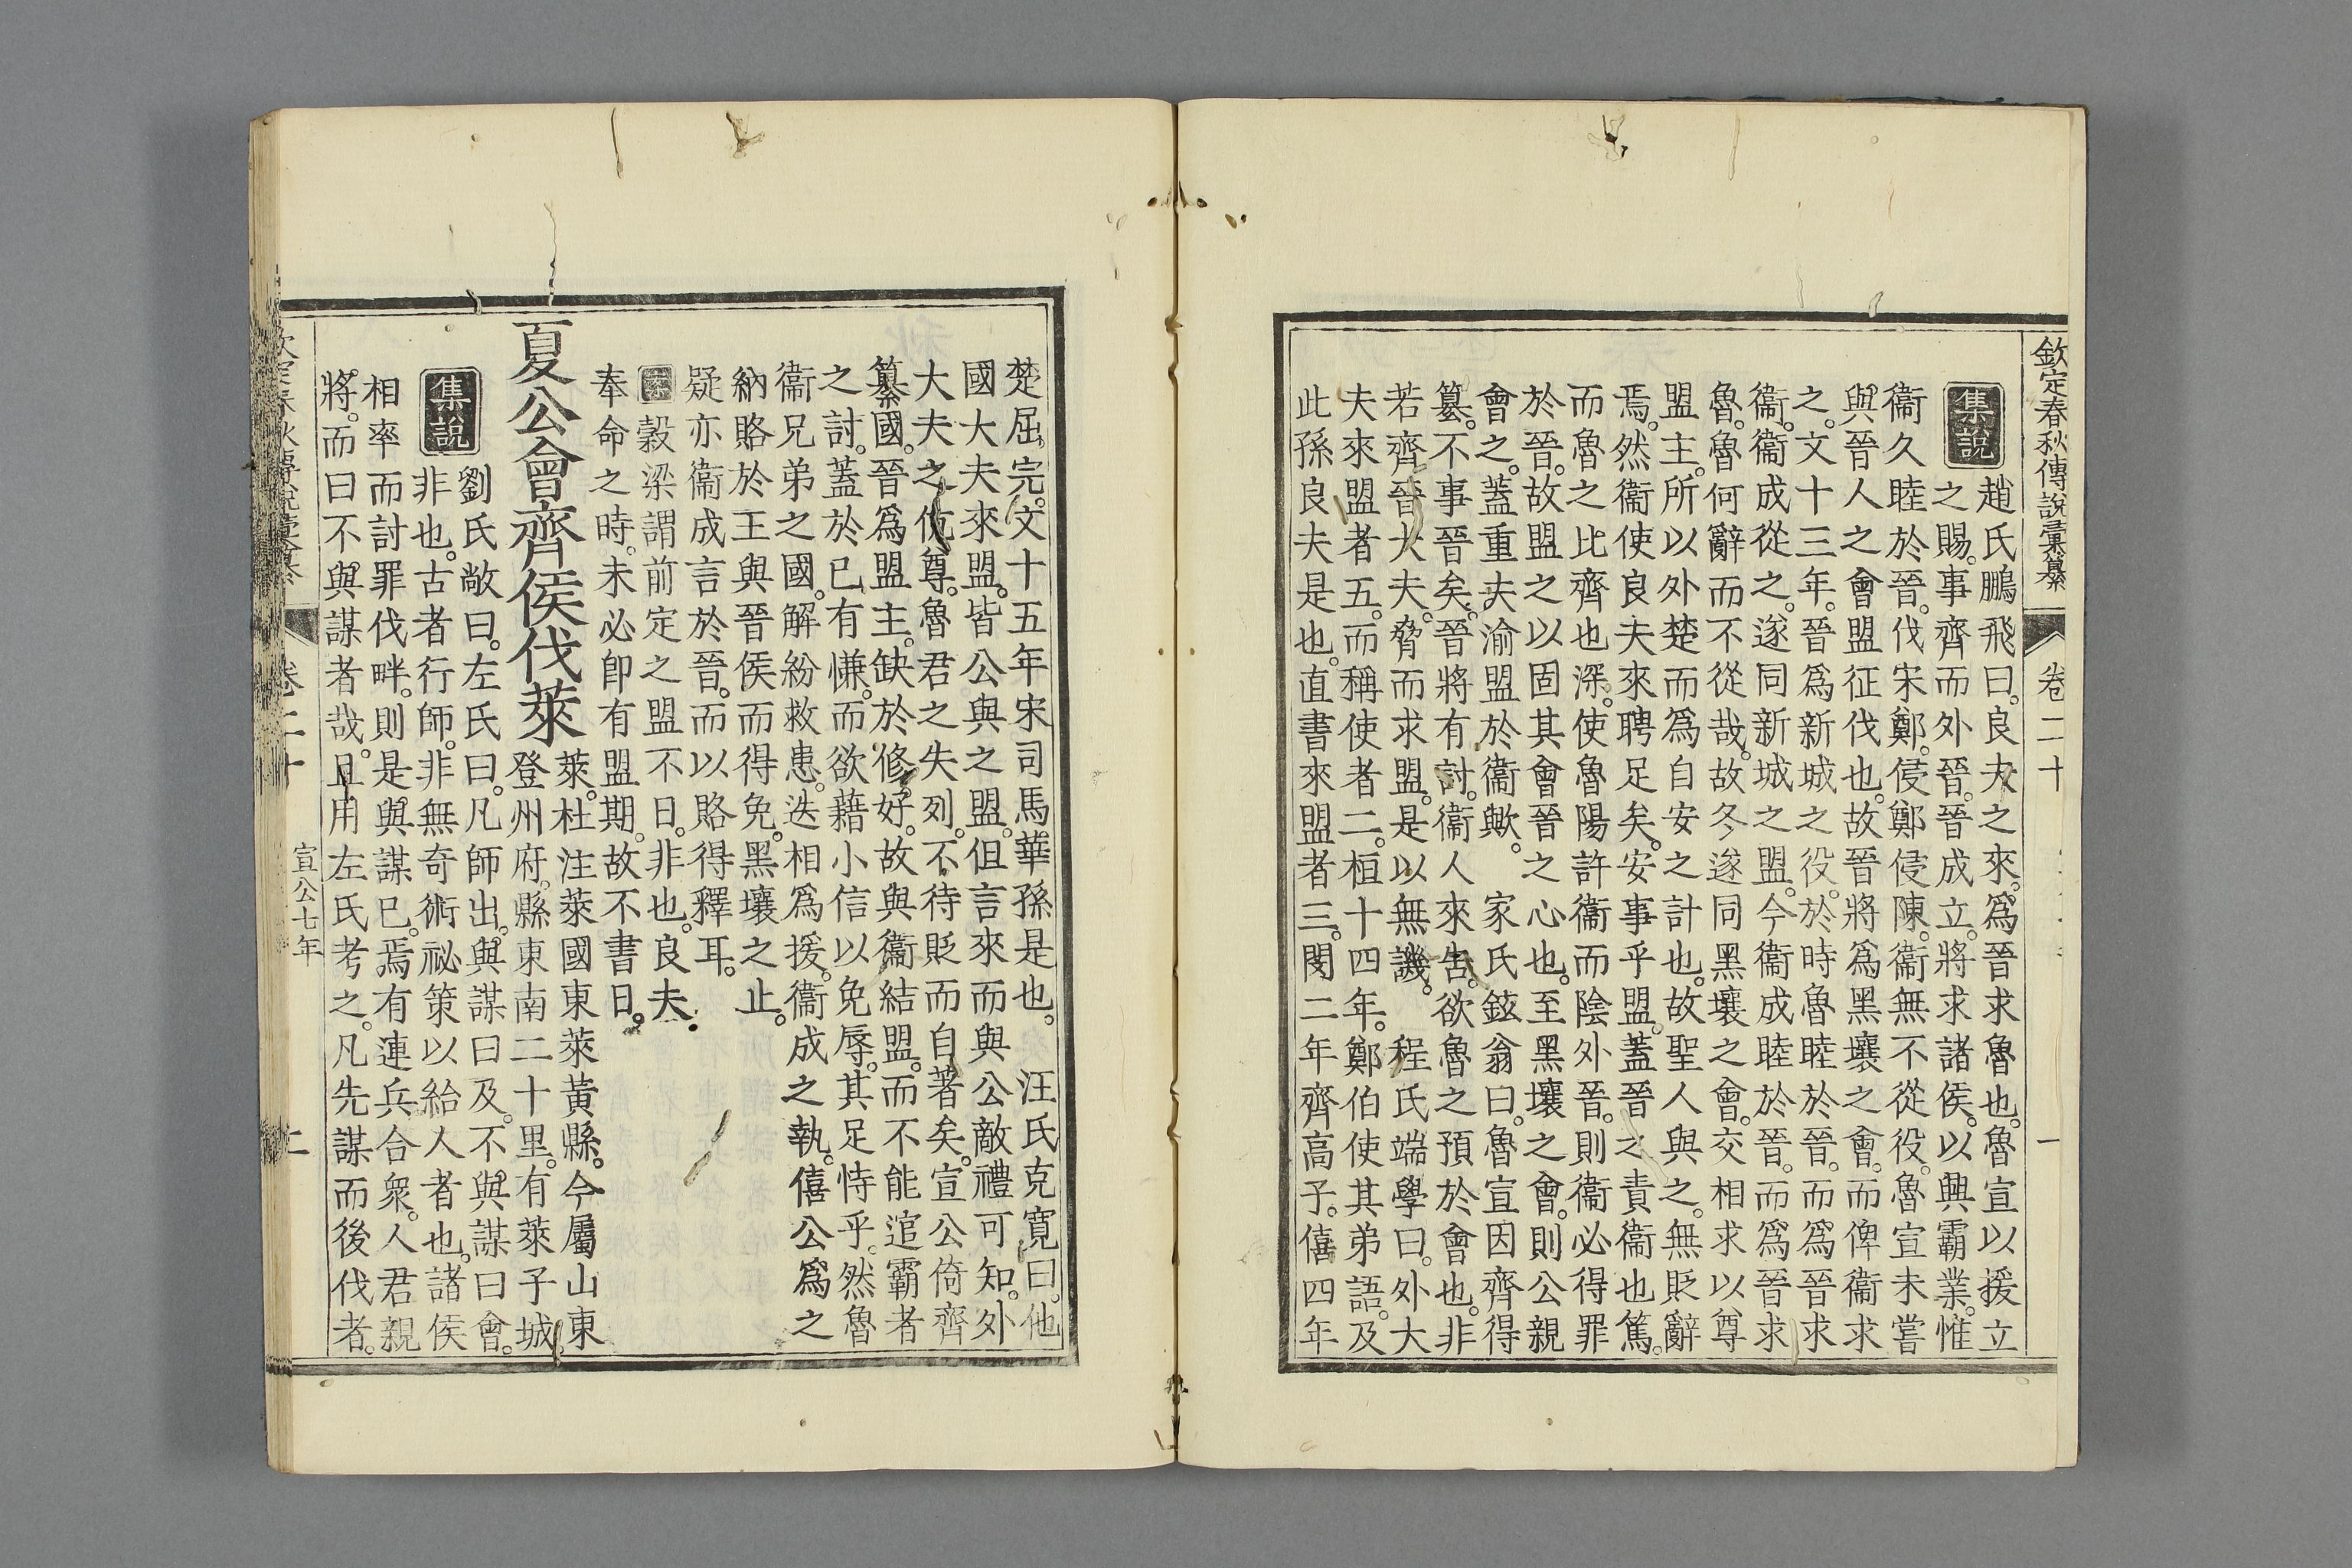 欽定春秋傳說彙纂 卷二十 一
集說
趙氏鵬飛曰。良夫之來。爲晉求魯也。魯宣以援立
之賜。事齊而外晉。晉成立。將求諸侯。以興霸業。惟
衞久睦於晉。伐宋鄭。侵鄭侵陳。衞無不從役。魯宣未嘗
與晉人之會盟征伐也。故晉將爲黑壤之會。而俾衞求
之。文十三年。晉爲新城之役。於時魯睦於晉。而爲晉求
衞。衞成從之。遂同新城之盟。今衞成睦於晉。而爲晉求
魯。魯何辭而不從哉。故冬遂同黑壤之會。交相求以尊
盟主。所以外楚而爲自安之計也。故聖人與之。無貶辭
焉。然衞使良夫來聘足矣。安事乎盟。蓋晉之責衞也篤。
而魯之比齊也深。使魯陽許衞而陰外晉。則衞必得罪
於晉。故盟之以固其會晉之心也。至黑壤之會。則公親
會之。蓋重夫渝盟於衞歟。 家氏鉉翁曰。魯宣因齊得
簒。不事晉矣。晉將有討。衞人來告。欲魯之預於會也。非
若齊晉大夫。脅而求盟。是以無譏。 程氏端學曰。外大
夫來盟者五。而稱使者二。桓十四年。鄭伯使其弟語。及
此孫良夫是也。直書來盟者三。閔二年齊高子。僖四年
楚屈完。文十五年宋司馬華孫是也。 汪氏克寬曰。他
國大夫來盟。皆公與之盟。但言來而與公敵禮可知。外
大夫之伉尊。魯君之失列。不待貶而自著矣。宣公倚齊
篡國。晉爲盟主。缺於修好。故與衞結盟。而不能逭霸者
之討。蓋於已有慊。而欲藉小信以免辱。其足恃乎。然魯
衞兄弟之國。解紛救患。迭相爲援。衞成之執。僖公爲之
納賂於王與晉侯。而得免。黑壤之止。
疑亦衞成言於晉。而以賂得釋耳。
穀梁謂前定之盟不日。非也。良夫
奉命之時。未必卽有盟期。故不書日。
夏公會齊侯伐萊
萊。杜注萊國東萊黃縣。今屬山東
登州府。縣東南二十里。有萊子城。
集說
劉氏敞曰。左氏曰。凡師出。與謀曰及。不與謀曰會。
非也。古者行師。非無奇術祕策以給人者也。諸侯
相率而討罪伐畔。則是與謀已。焉有連兵合衆。人君親
將。而曰不與謀者哉。且用左氏考之。凡先謀而後伐者。
欽定春秋傳說彙纂 卷二十 宣公七年 二